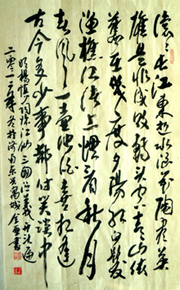 滚滚长江东逝水浪花淘尽英
雄是非成败转头空青山依
旧在几度夕阳红白发
渔樵江渚上惯看秋月
春风一壶浊酒喜相逢
古今多少事都付笑谈中
明杨慎词临江仙三国演义开
二零一六年